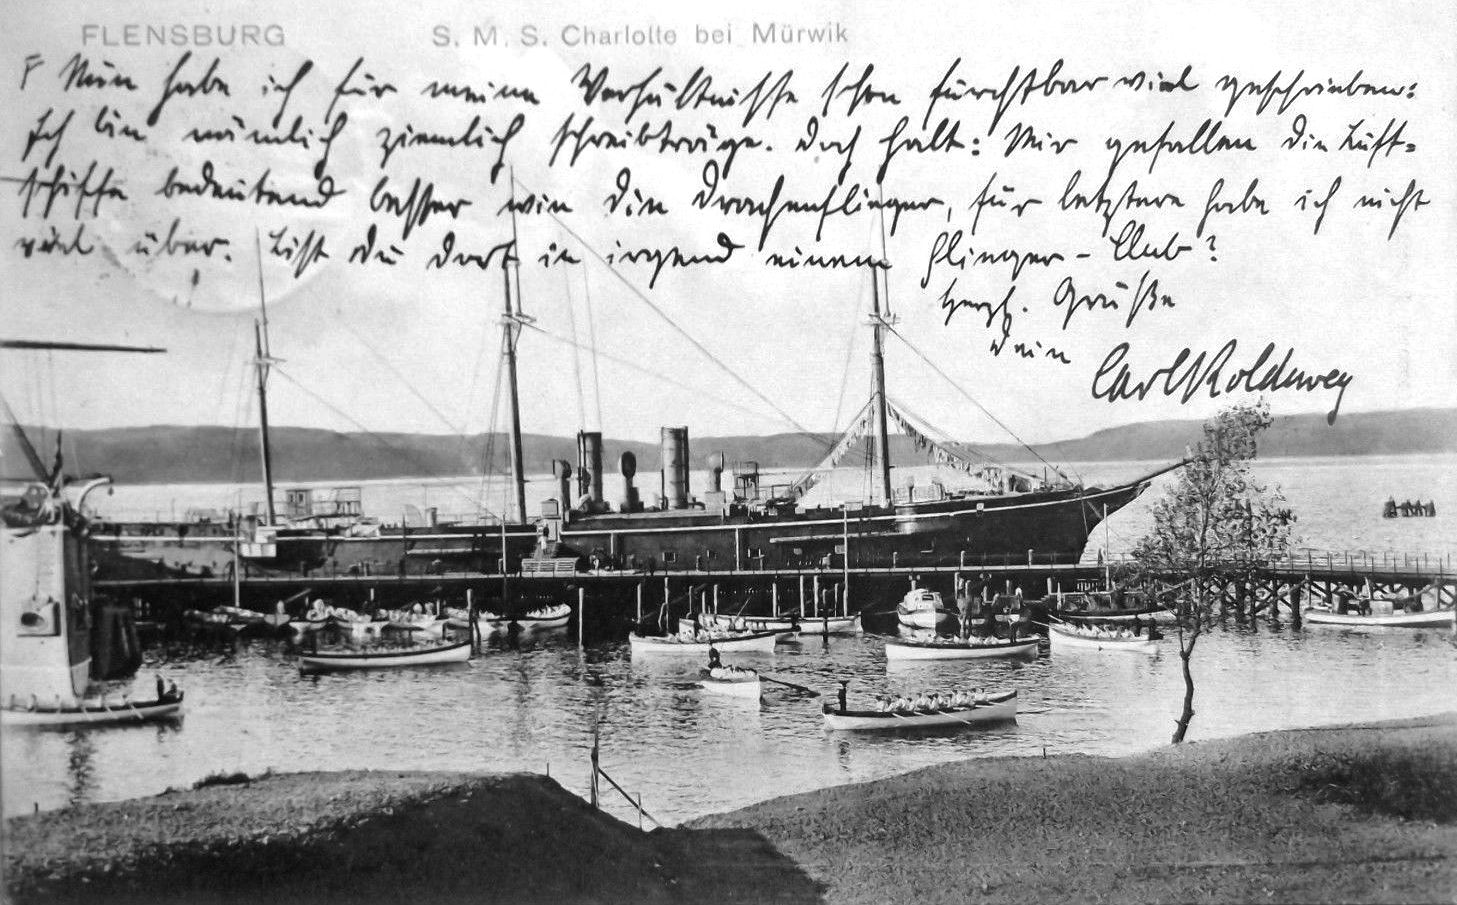 FLENSBURG S. M. S. Charlotte bei Mürwik
Nun habe ich für meine Verhältnisse schon furchtbar viel geschrieben:
Ich bin nämlich ziemlich schreibträge. Doch halt: Mir gefallen die Luft=
schiffe bedeutend besser wie die Drachenflieger, für letztere habe ich nicht
viel über. Bist Du dort in irgend einem Flieger-Club?
Herzl. Grüße
Dein Carl Koldewey